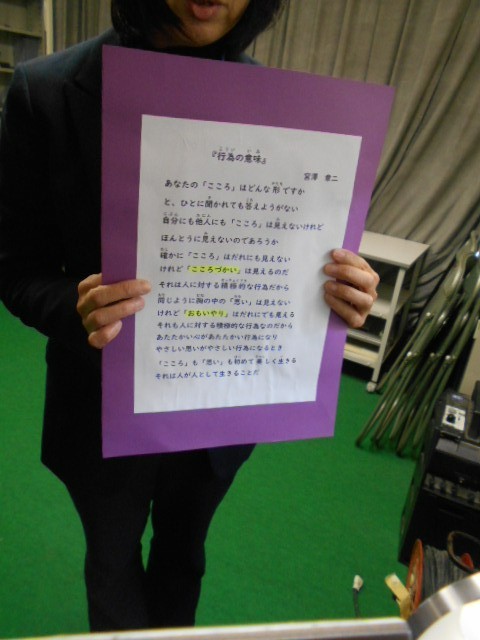 『行為の意味』
宮澤 章二
あなたの「こころ」はどんな形ですか
と、ひとに聞かれても答えようがない
自分にも他人にも「こころ」は見えないけれど
ほんとうに見えないのであろうか
確かに「こころ」はだれにも見えない
けれど「こころづかい」は見えるのだ
それは人に対する積極的な行為だから
同じように胸の中の「思い」は見えない
けれど「おもいやり」はだれにでも見える
それも人に対する積極的な行為なのだから
あたたかい心があたたかい行為になり
やさしい思いがやさしい行為になるとき
「こころ」も「思い」も初めて美しく生きる
それは人が人として生きることだ